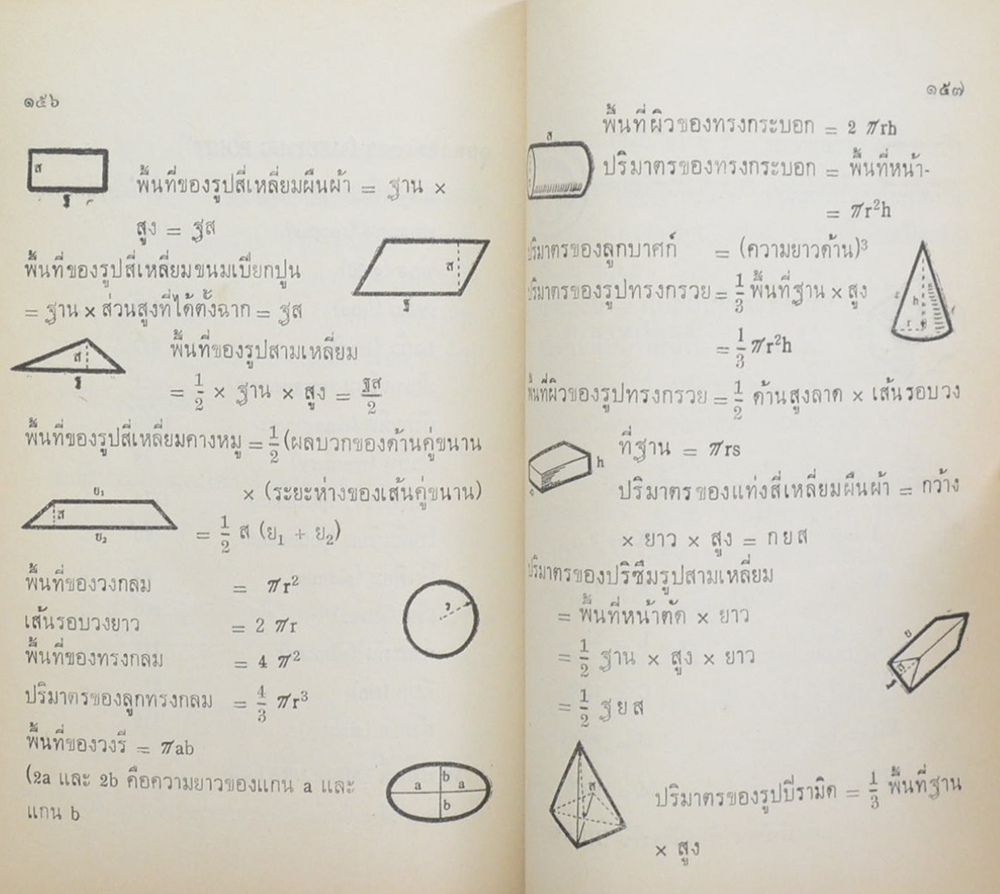 ๑๕๖
ส
ฐ
พื้นที่ของรูปสี่เหลี่ยมผืนผ้า = ฐาน ×
สูง = ฐส
พื้นที่ของรูปสี่เหลี่ยมขนมเปียกปูน
= ฐาน × ส่วนสูงที่ได้ตั้งฉาก = ฐส
ส
ฐ
พื้นที่ของรูปสามเหลี่ยม
= 1/2 × ฐาน × สูง = ฐส/2
ส
ฐ
พื้นที่ของรูปสี่เหลี่ยมคางหมู = 1/2 (ผลบวกของด้านคู่ขนาน
× (ระยะห่างของเส้นคู่ขนาน)
= 1/2 ส (ย₁ + ย₂)
ย₁
ส
ย₂
พื้นที่ของวงกลม = πr²
เส้นรอบวงยาว = 2 πr
พื้นที่ของทรงกลม = 4 π²
ปริมาตรของลูกทรงกลม = 4/3 πr³
พื้นที่ของวงรี = πab
(2a และ 2b คือความยาวของแกน a และ
แกน b
b
a a
b
๑๕๗
พื้นที่ผิวของทรงกระบอก = 2 πrh
ปริมาตรของทรงกระบอก = พื้นที่หน้า-
= πr²h
ส
ปริมาตรของลูกบาศก์ = (ความยาวด้าน)³
ปริมาตรของรูปทรงกรวย = 1/3 พื้นที่ฐาน × สูง
= 1/3 πr²h
h
r
พื้นที่ผิวของรูปทรงกรวย = 1/2 ด้านสูงลาด × เส้นรอบวง
ที่ฐาน = πrs
h
ปริมาตรของแท่งสี่เหลี่ยมผืนผ้า = กว้าง
× ยาว × สูง = กยส
ปริมาตรของปริซึมรูปสามเหลี่ยม
= พื้นที่หน้าตัด × ยาว
= 1/2 ฐาน × สูง × ยาว
= 1/2 ฐยส
ย
ส
ปริมาตรของรูปปีรามิด = 1/3 พื้นที่ฐาน
× สูง
ส